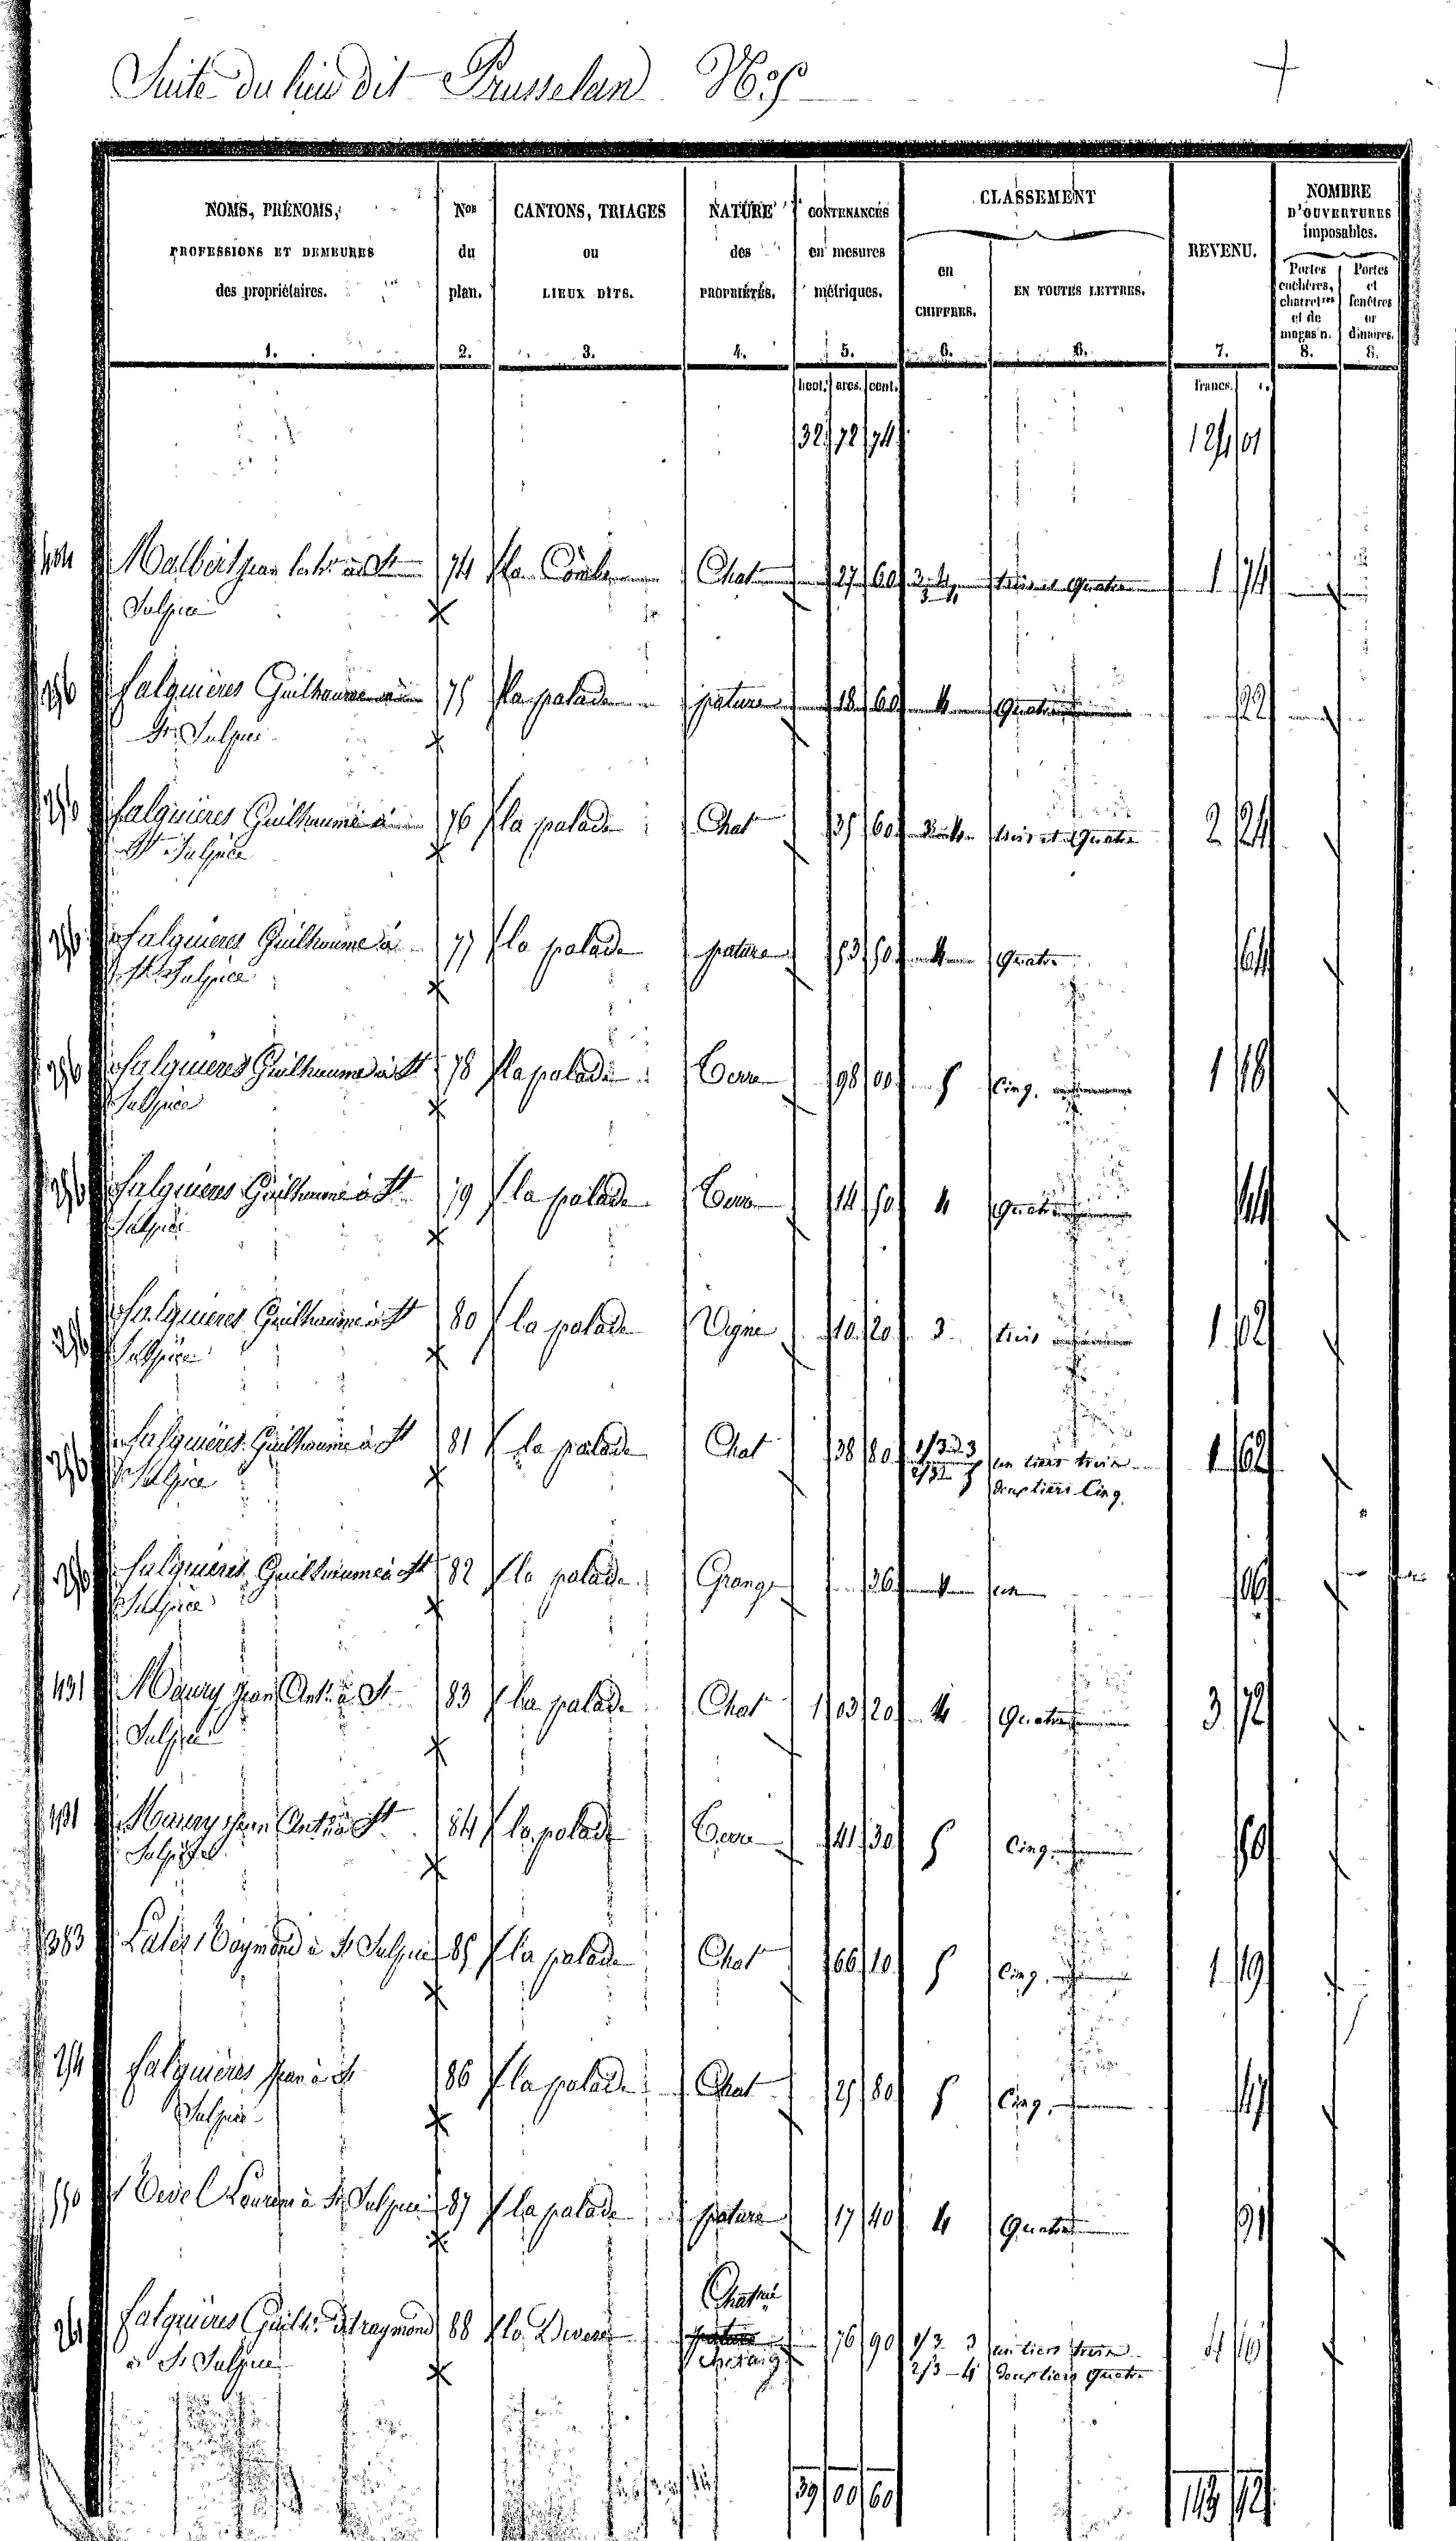 Suite du lieu dit Prusselan N.º 5
NOMS, PRÉNOMS, PROFESSIONS ET DEMEURES des propriétaires. 1.
Nos du plan. 2.
CANTONS, TRIAGES ou LIEUX DITS. 3.
NATURE des PROPRIÉTÉS. 4.
CONTENANCES en mesures métriques. 5.
CLASSEMENT
en CHIFFRES. 6.
EN TOUTES LETTRES. 6.
REVENU. 7.
NOMBRE D'OUVERTURES imposables.
Portes cochères, charret.res et de magas'n. 8.
Portes et fenêtres or dinaires. 8.
hect. ares. cent. francs. c.
32 72 74 124 01
Malbert jean à St 74 la Combe Chat 27 60 3-4 trois et Quatre 1 74
Sulpice 3-4
256 falguières Guilhaume à 75 la palade pature 18 60 4 Quatre 22
St Sulpice
256 falguières Guilhaume à 76 la palade Chat 35 60 3-4 trois et Quatre 2 24
St Sulpice
256 falguières Guilhaume à 77 la palade pature 53 50 4 Quatre 64
St Sulpice
256 falguières Guilhaume à St 78 la palade Terre 98 00 5 Cinq. 1 18
Sulpice
256 falguières Guilhaume à St 79 la palade Terre 14 50 4 Quatre 44
Sulpice
256 falguières Guilhaume à St 80 la palade Vigne 10 20 3 trois 1 02
Sulpice
256 falguières Guilhaume à St 81 la palade Chat 38 80 1/3 3 un tiers trois 1 62
Sulpice 2/3 5 deux tiers Cinq.
256 falguières Guilhaume à St 82 la palade Grange 36 un 06
Sulpice
431 Maury jean Ant.e à St 83 la palade Chat 1 03 20 4 Quatre 3 72
Sulpice
431 Maury jean Ant.e à St 84 la palade Terre 41 30 5 Cinq. 50
Sulpice
383 Raymond à St Sulpice 85 la palade Chat 66 10 5 Cinq. 1 19
254 falguières jean à St 86 la palade Chat 25 80 5 Cinq. 47
Sulpice
550 à St Sulpice 87 la palade pature 17 40 4 Quatre 21
Chat
261 falguières Guilh.e raymond 88 la Devese pature 76 90 1/3 3 un tiers trois
à St Sulpice 2/3-4 deux tiers Quatre
39 00 60